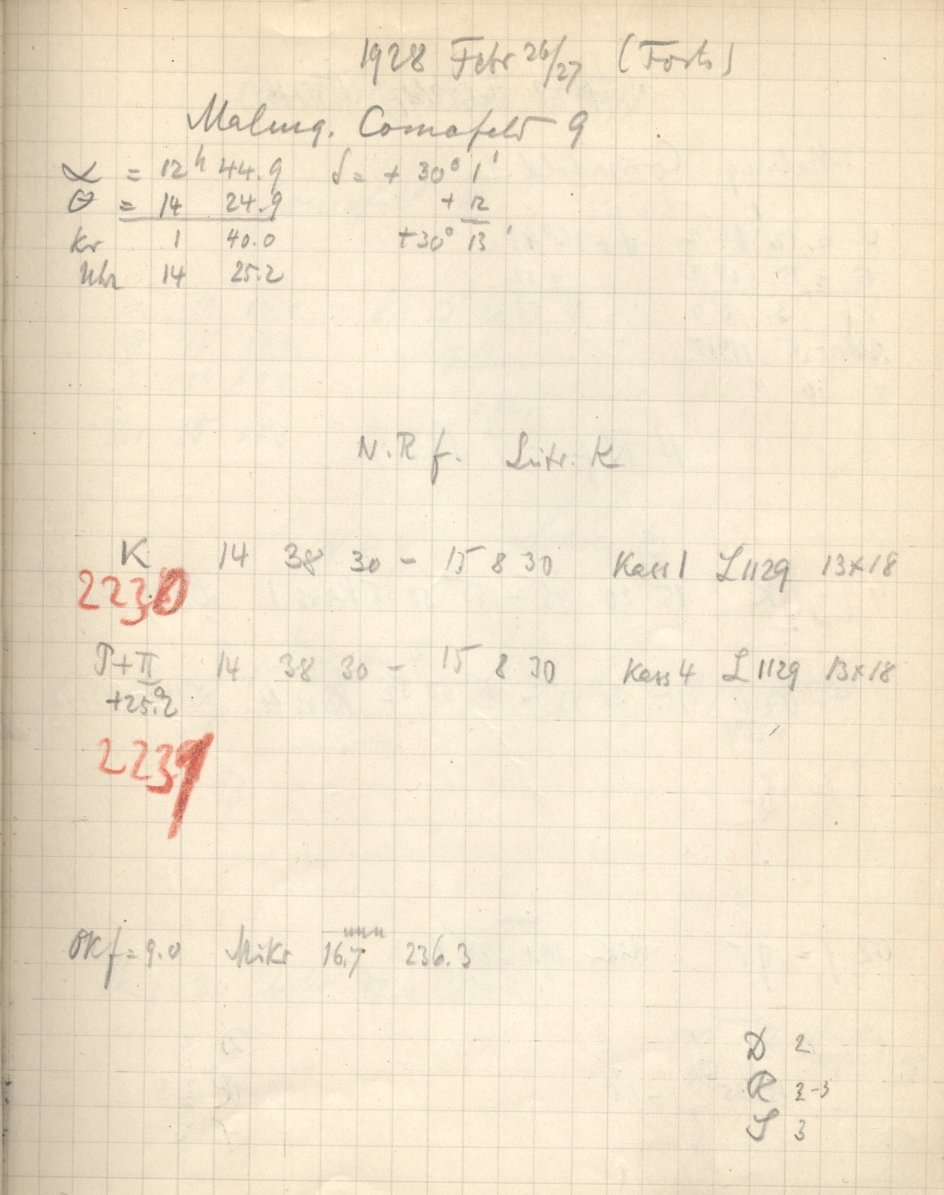 1928 Febr 26/27 (Forts)
Malmq. Comafeld 9
α = 12h 44.9 δ = + 30° 1'
θ = 14 24.9 + 12
Kr 1 40.0 +30° 13'
Uhr 14 25.2
N.R f. Lutr. K
K 14 38 30 - 15 8 30 Kass 1 L 1129 13×18
2230
T+II 14 38 30 - 15 8 30 Kass 4 L 1129 13×18
+25.2
2231
OKf = 9.0 Mikr 16.7 236.3
D 2
R 2-3
S 3